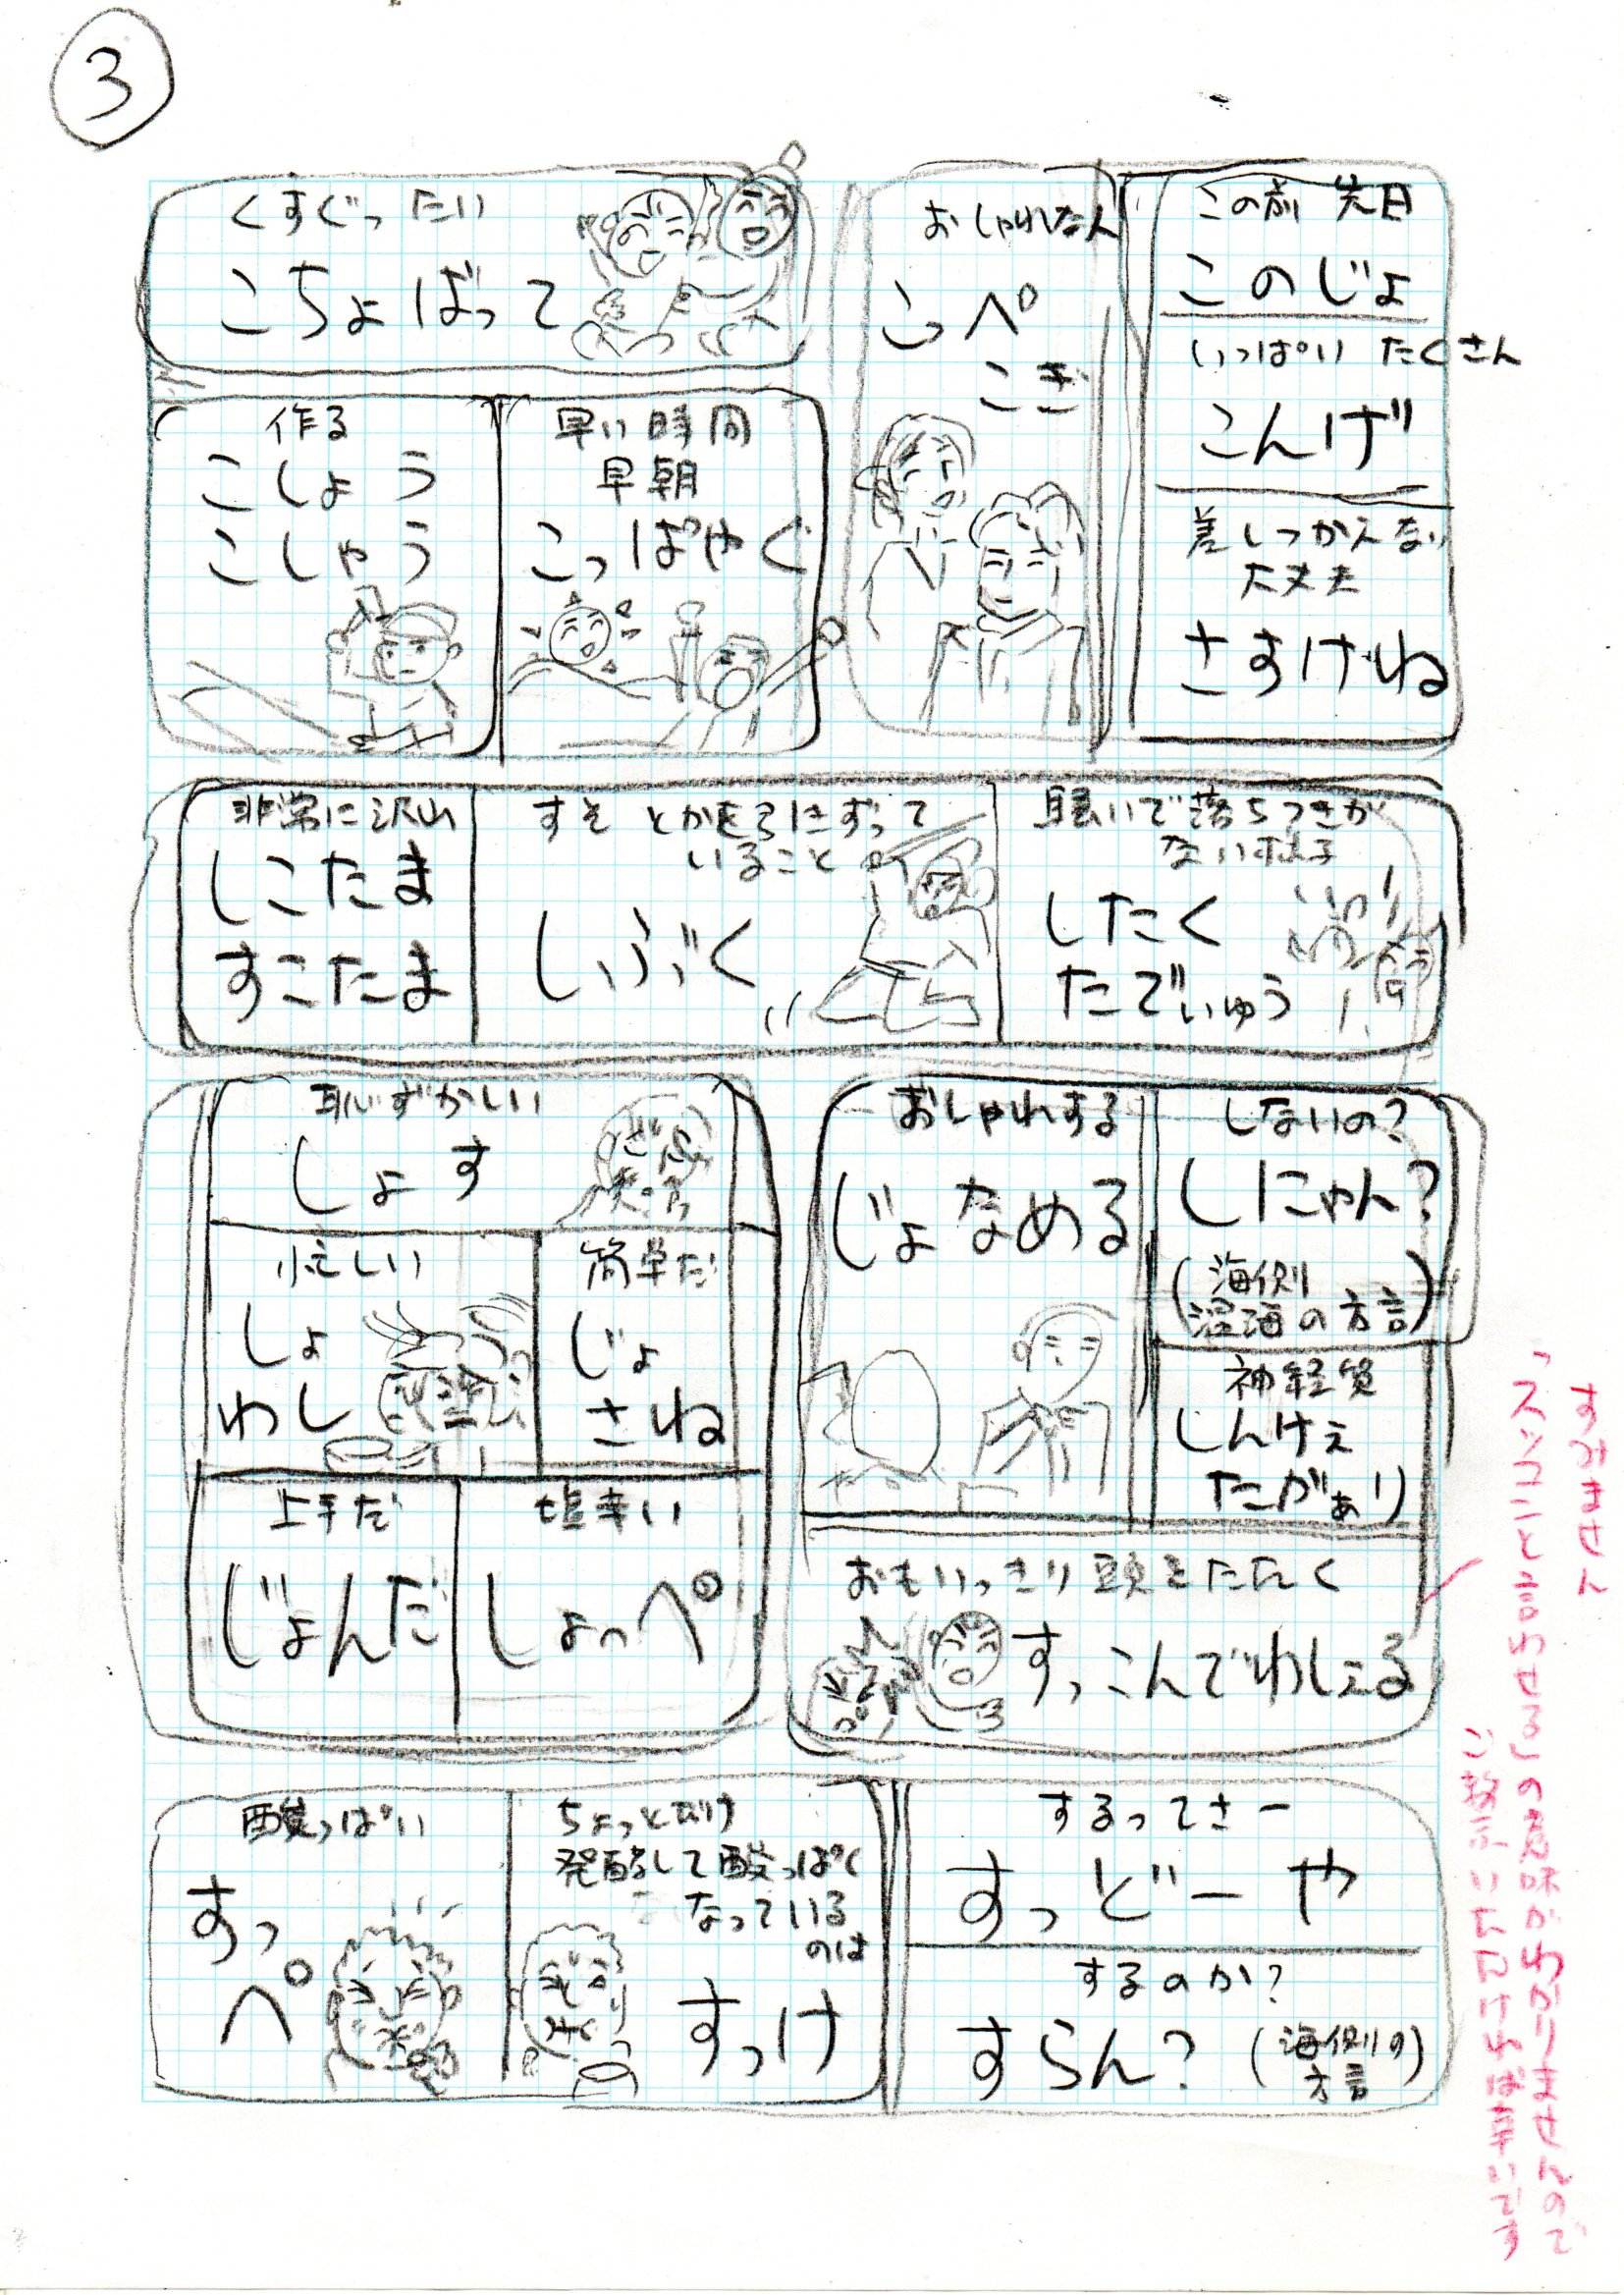 3
くすぐったい
こちょばって
おしゃれな人
こっぺ
こぎ
この前 先日
このじょ
いっぱい たくさん
こんげ
差しつかえない
大丈夫
さすけね
作る
こしょう
こしゃう
早い時間
早朝
こっぱやぐ
非常に沢山
しこたま
すこたま
すそとかを引きずって
いること
しぶく
騒いで落ちつきが
ない様子
したく
たでぃゅう
恥ずかしい
しょす
忙しい
しょ
わし
簡単だ
じょ
さね
上手だ
じょんだ
塩辛い
しょっぺ
おしゃれする
じょなめる
しないの?
しにゃん?
(海側
温海の方言)
神経質
しんけぇ
たがぁり
おもいっきり頭をたたく
すっこんでわしぇる
酸っぱい
すっ
ぺ
ちょっとだけ
発酵して酸っぱく
なっている
のは
すっけ
するってさー
すっどーや
するのか?
すらん?(海側の
方言)
すみません